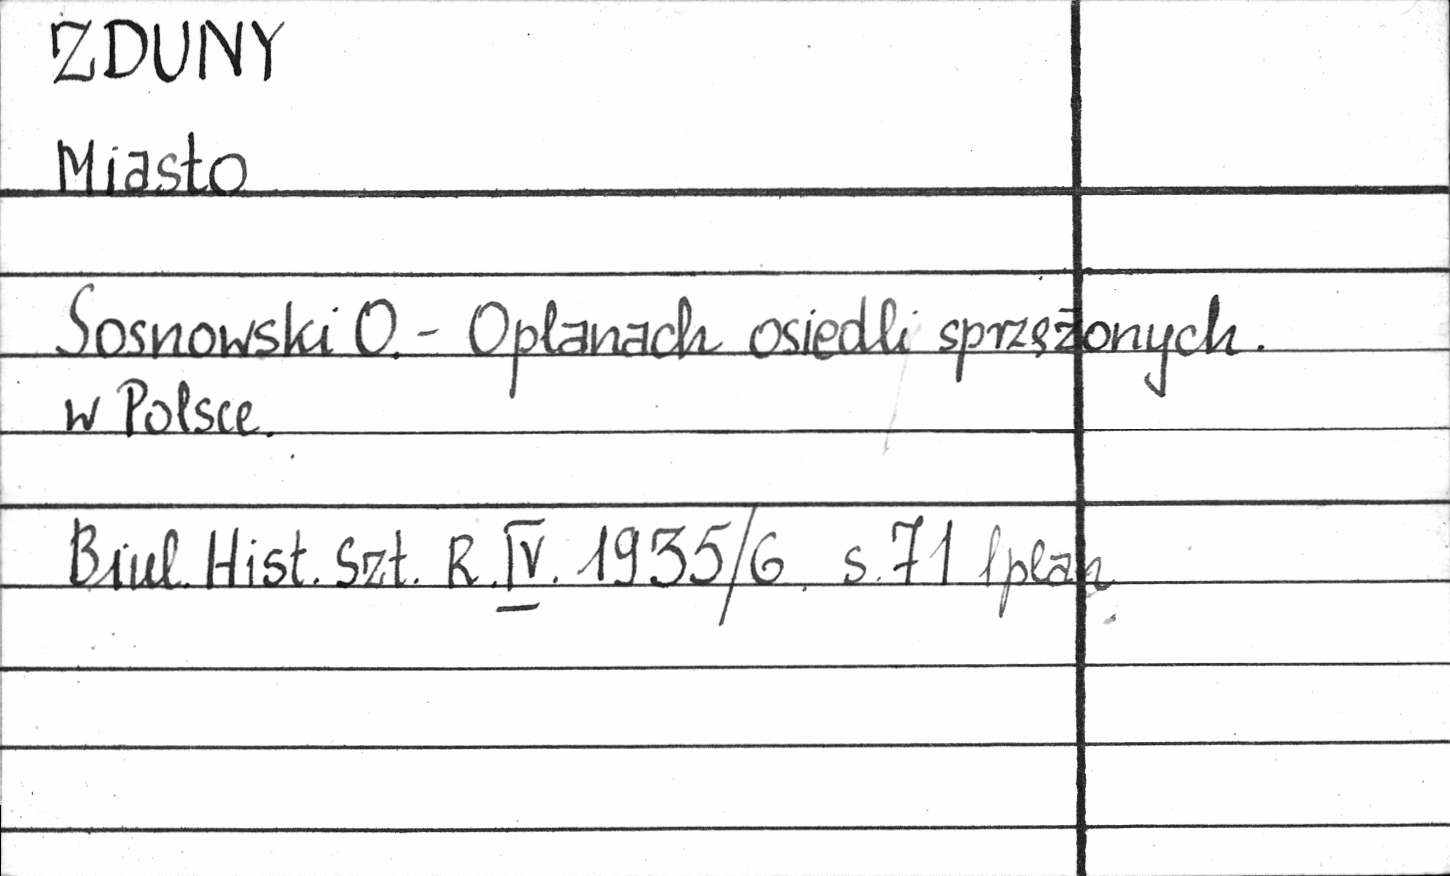 ZDUNY
Miasto
Sosnowski O. - O planach osiedli sprzężonych.
w Polsce.
Biul. Hist. Szt. R. IV. 1935/6. s. 71 1 plan